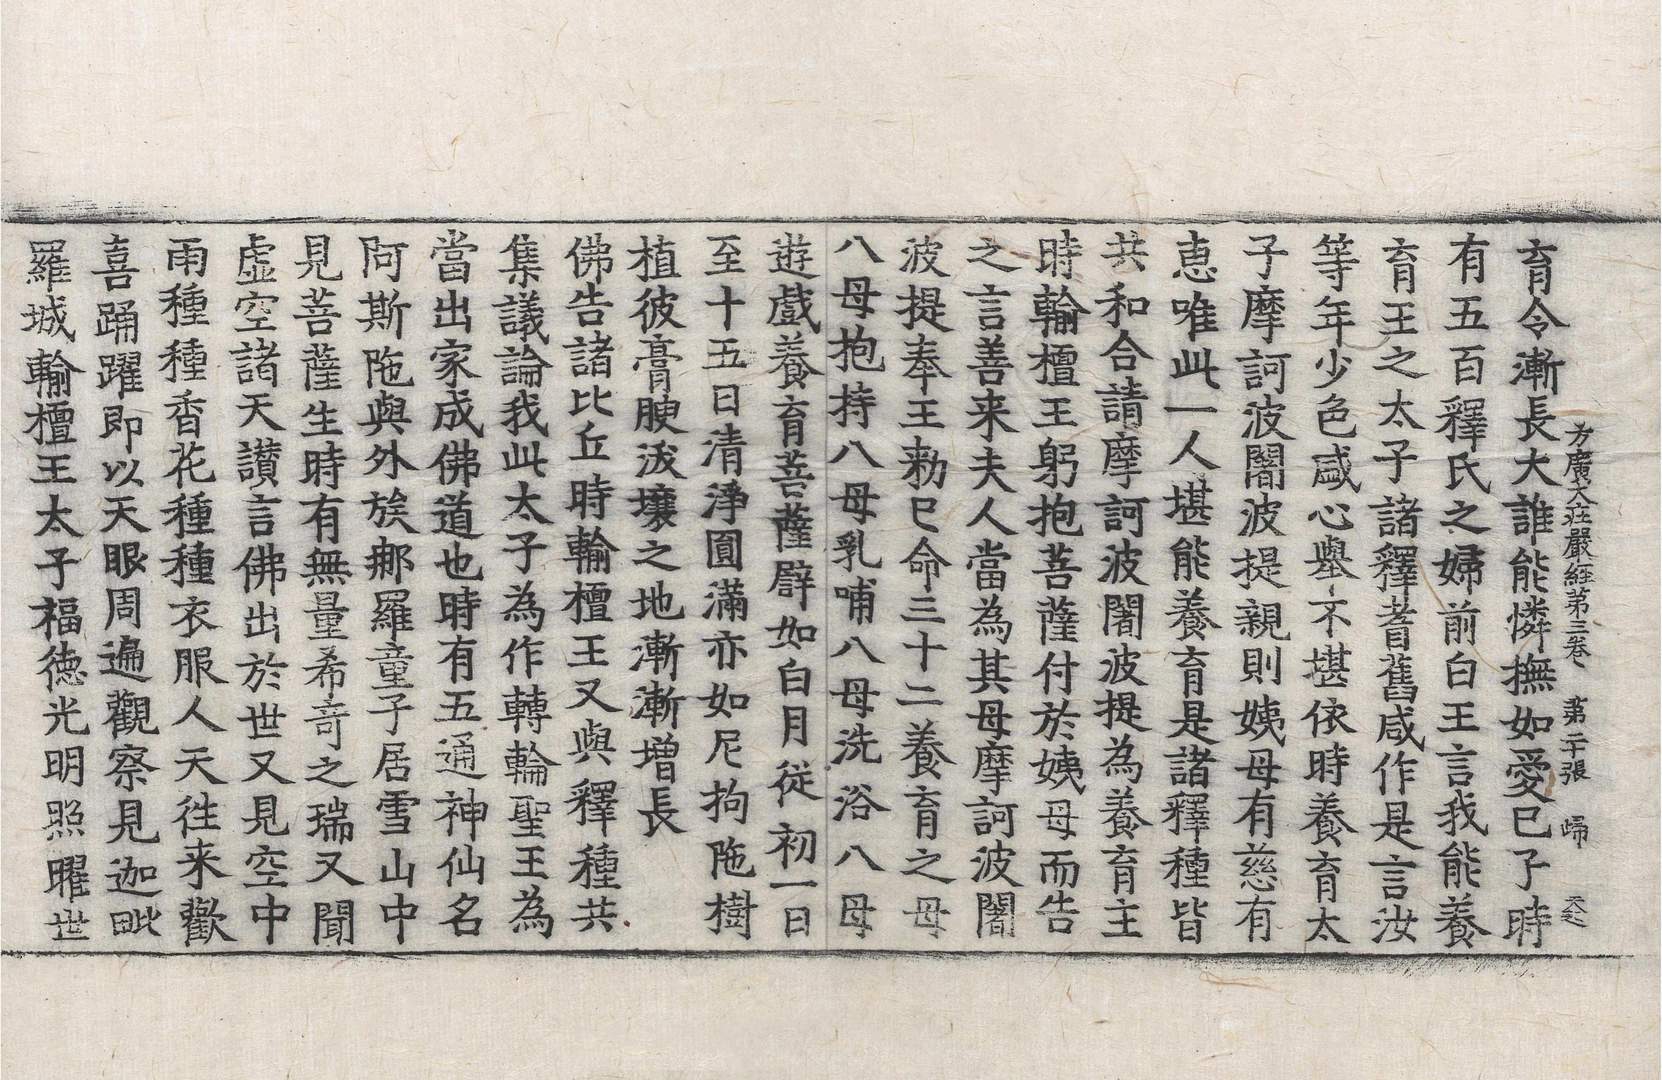 方廣大莊嚴經第三卷 第二十張 歸
育令漸長大誰能憐撫如愛己子時
有五百釋氏之婦前白王言我能養
育王之太子諸釋耆舊咸作是言汝
等年少色盛心舉不堪依時養育太
子摩訶波闍波提親則姨母有慈有
恵唯此一人堪能養育是諸釋種皆
共和合請摩訶波闍波提為養育主
時輸檀王躬抱菩薩付於姨母而告
之言善来夫人當為其母摩訶波闍
波提奉王勅已命三十二養育之母
八母抱持八母乳哺八母洗浴八母
遊戲養育菩薩譬如白月従初一日
至十五日清淨圓滿亦如尼拘陁樹
植彼膏腴沃壤之地漸漸增長
佛告諸比丘時輸檀王又與釋種共
集議論我此太子為作轉輪聖王為
當出家成佛道也時有五通神仙名
阿斯陁與外族那羅童子居雪山中
見菩薩生時有無量希竒之瑞又聞
虛空諸天讃言佛出於世又見空中
雨種種香花種種衣服人天往来歡
喜踊躍即以天眼周遍觀察見迦毗
羅城輸檀王太子福德光明照曜世